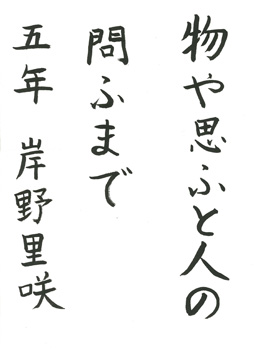 物や思ふと人の
問ふまで
五年 岸野里咲